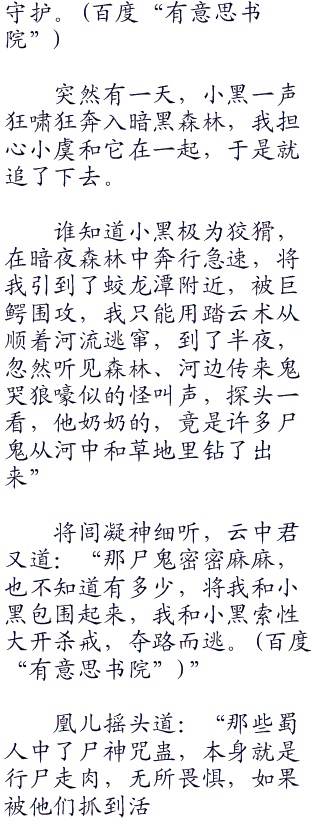 守护。(百度“有意思书
院”)
突然有一天，小黑一声
狂啸狂奔入暗黑森林，我担
心小虞和它在一起，于是就
追了下去。
谁知道小黑极为狡猾，
在暗夜森林中奔行急速，将
我引到了蛟龙潭附近，被巨
鳄围攻，我只能用踏云术从
顺着河流逃窜，到了半夜，
忽然听见森林、河边传来鬼
哭狼嚎似的怪叫声，探头一
看，他奶奶的，竟是许多尸
鬼从河中和草地里钻了出
来”
将闾凝神细听，云中君
又道：“那尸鬼密密麻麻，
也不知道有多少，将我和小
黑包围起来，我和小黑索性
大开杀戒，夺路而逃。(百度
“有意思书院”)”
凰儿摇头道：“那些蜀
人中了尸神咒蛊，本身就是
行尸走肉，无所畏惧，如果
被他们抓到活